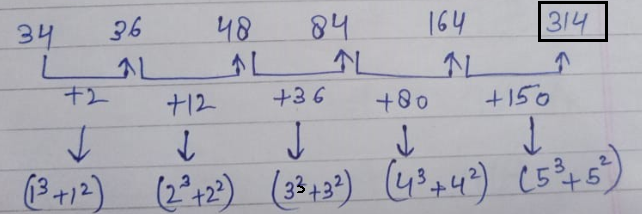 34 36 48 84 164 314
+2 +12 +36 +80 +150
(1³+1²) (2³+2²) (3³+3²) (4³+4²) (5³+5²)